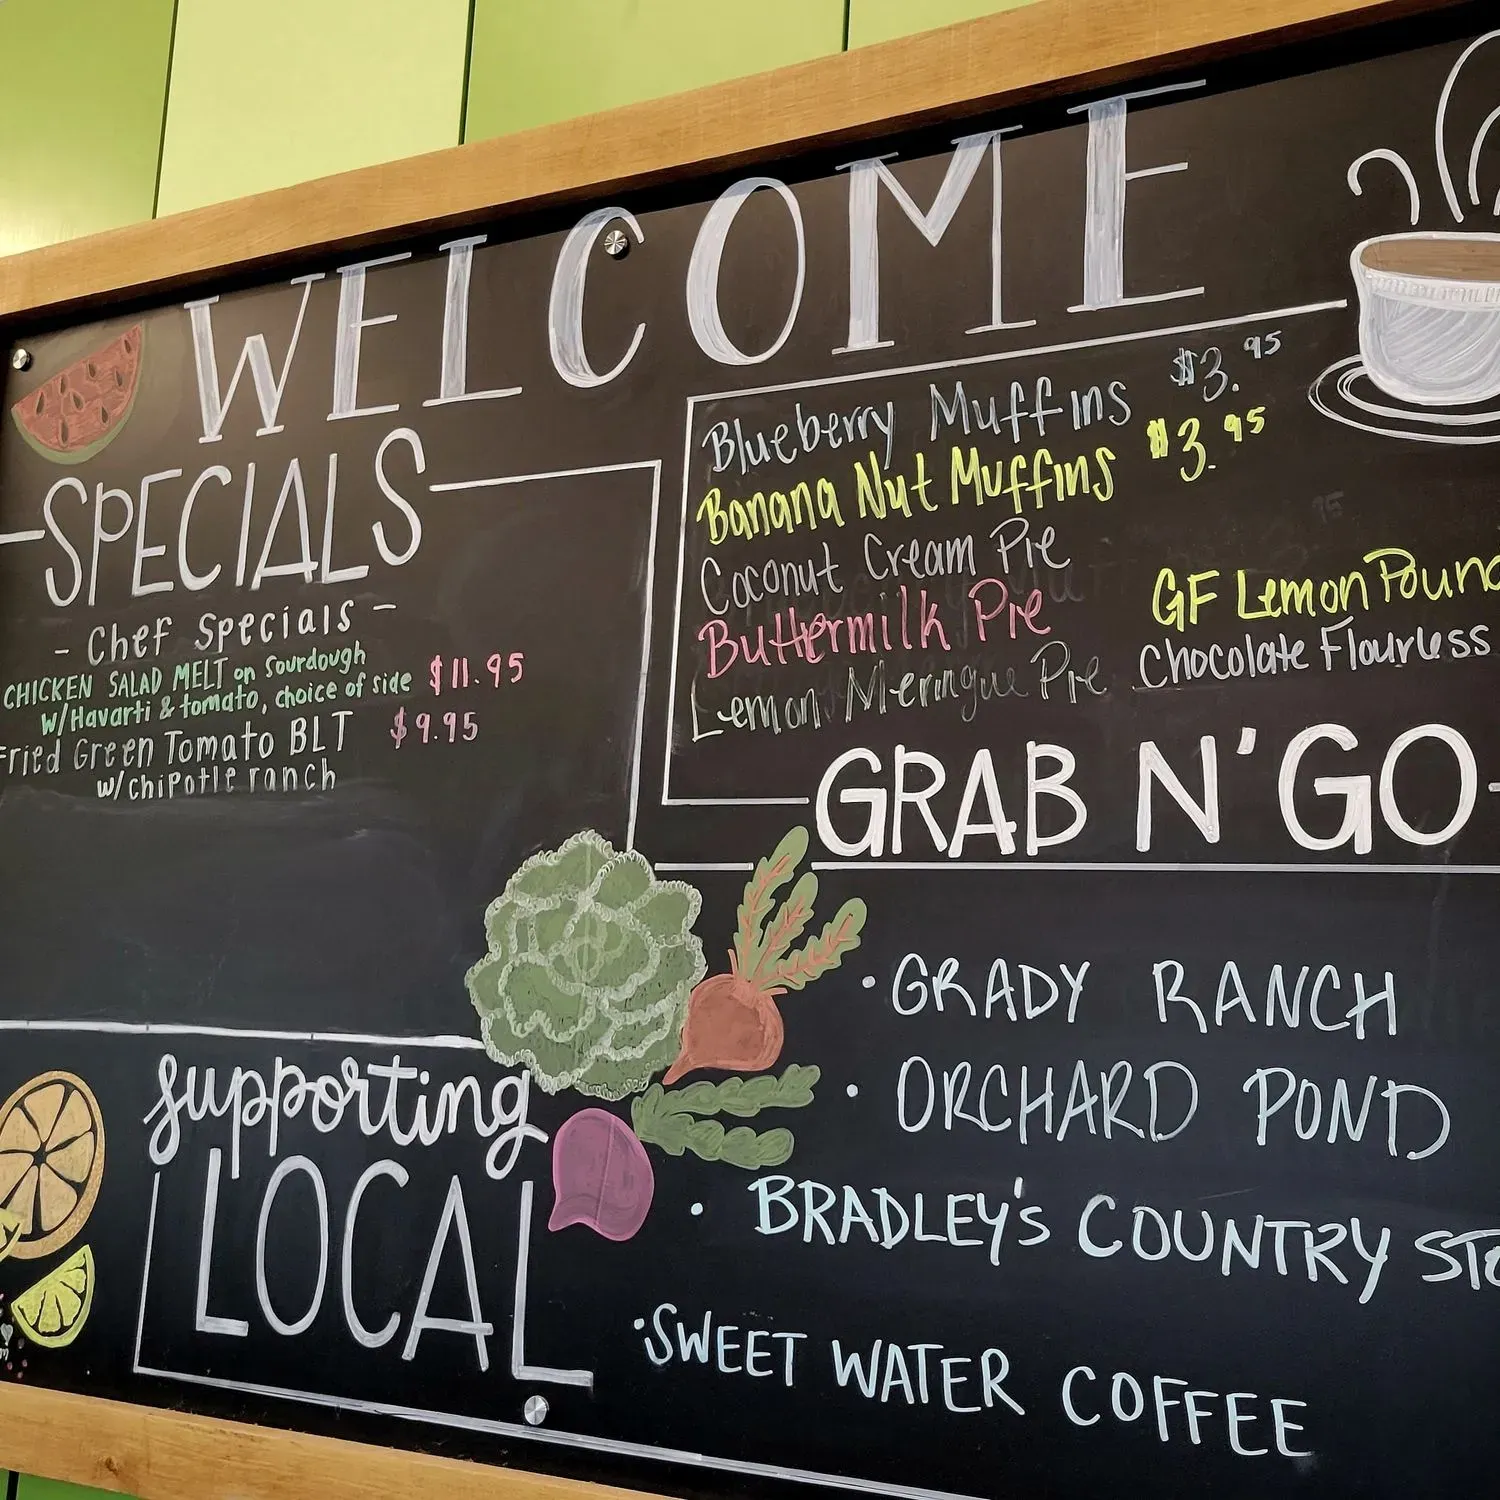 WELCOME
SPECIALS
- Chef Specials -
CHICKEN SALAD MELT on Sourdough $11.95
w/Havarti & tomato, choice of side
Fried Green Tomato BLT $9.95
w/chipotle ranch
Blueberry Muffins $3.95
Banana Nut Muffins $3.95
Coconut Cream Pie
Buttermilk Pie
Lemon Meringue Pie
GF Lemon Pound
Chocolate Flourless
GRAB N' GO
supporting
LOCAL
• GRADY RANCH
• ORCHARD POND
• BRADLEY'S COUNTRY STO
• SWEET WATER COFFEE